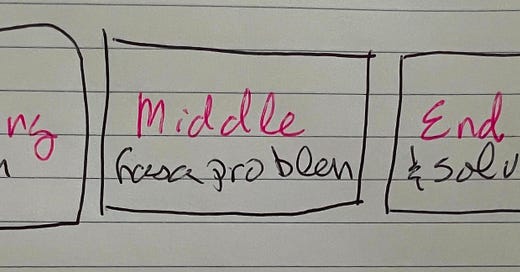 ng
Middle
has a problem
End
& solu